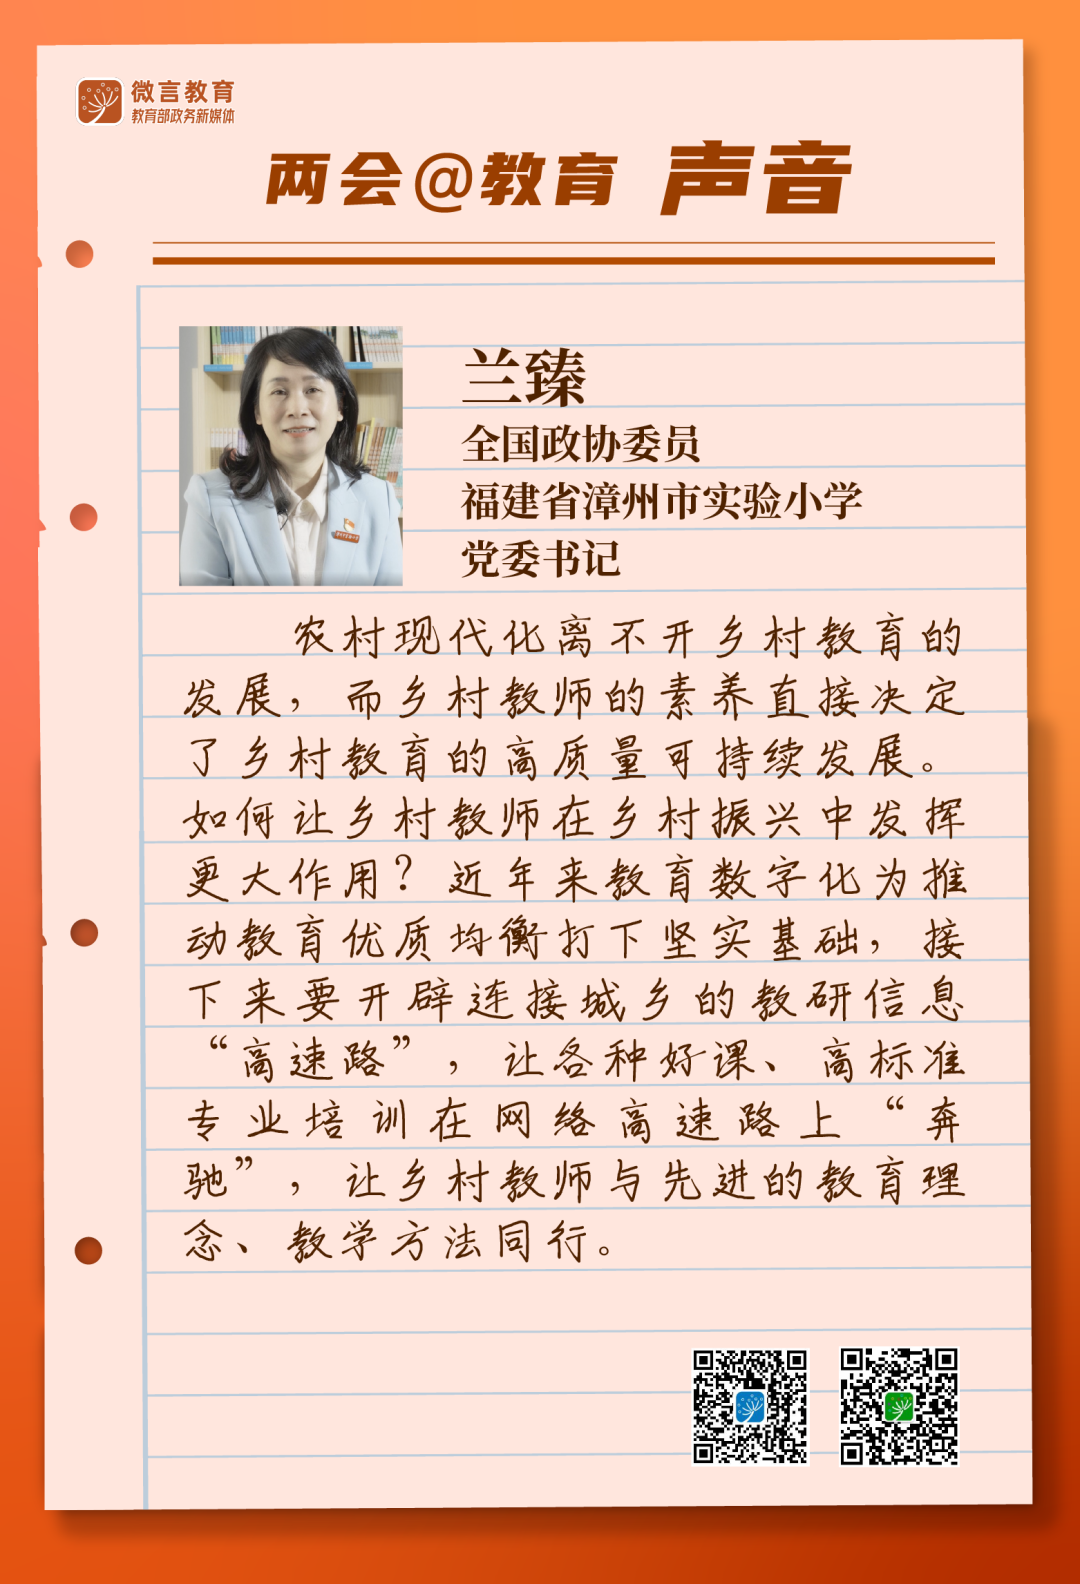 微言教育
教育部政务新媒体
两会@教育 声音
兰臻
全国政协委员
福建省漳州市实验小学
党委书记
农村现代化离不开乡村教育的
发展，而乡村教师的素养直接决定
了乡村教育的高质量可持续发展。
如何让乡村教师在乡村振兴中发挥
更大作用？近年来教育数字化为推
动教育优质均衡打下坚实基础，接
下来要开辟连接城乡的教研信息
“高速路”，让各种好课、高标准
专业培训在网络高速路上“奔
驰”，让乡村教师与先进的教育理
念、教学方法同行。